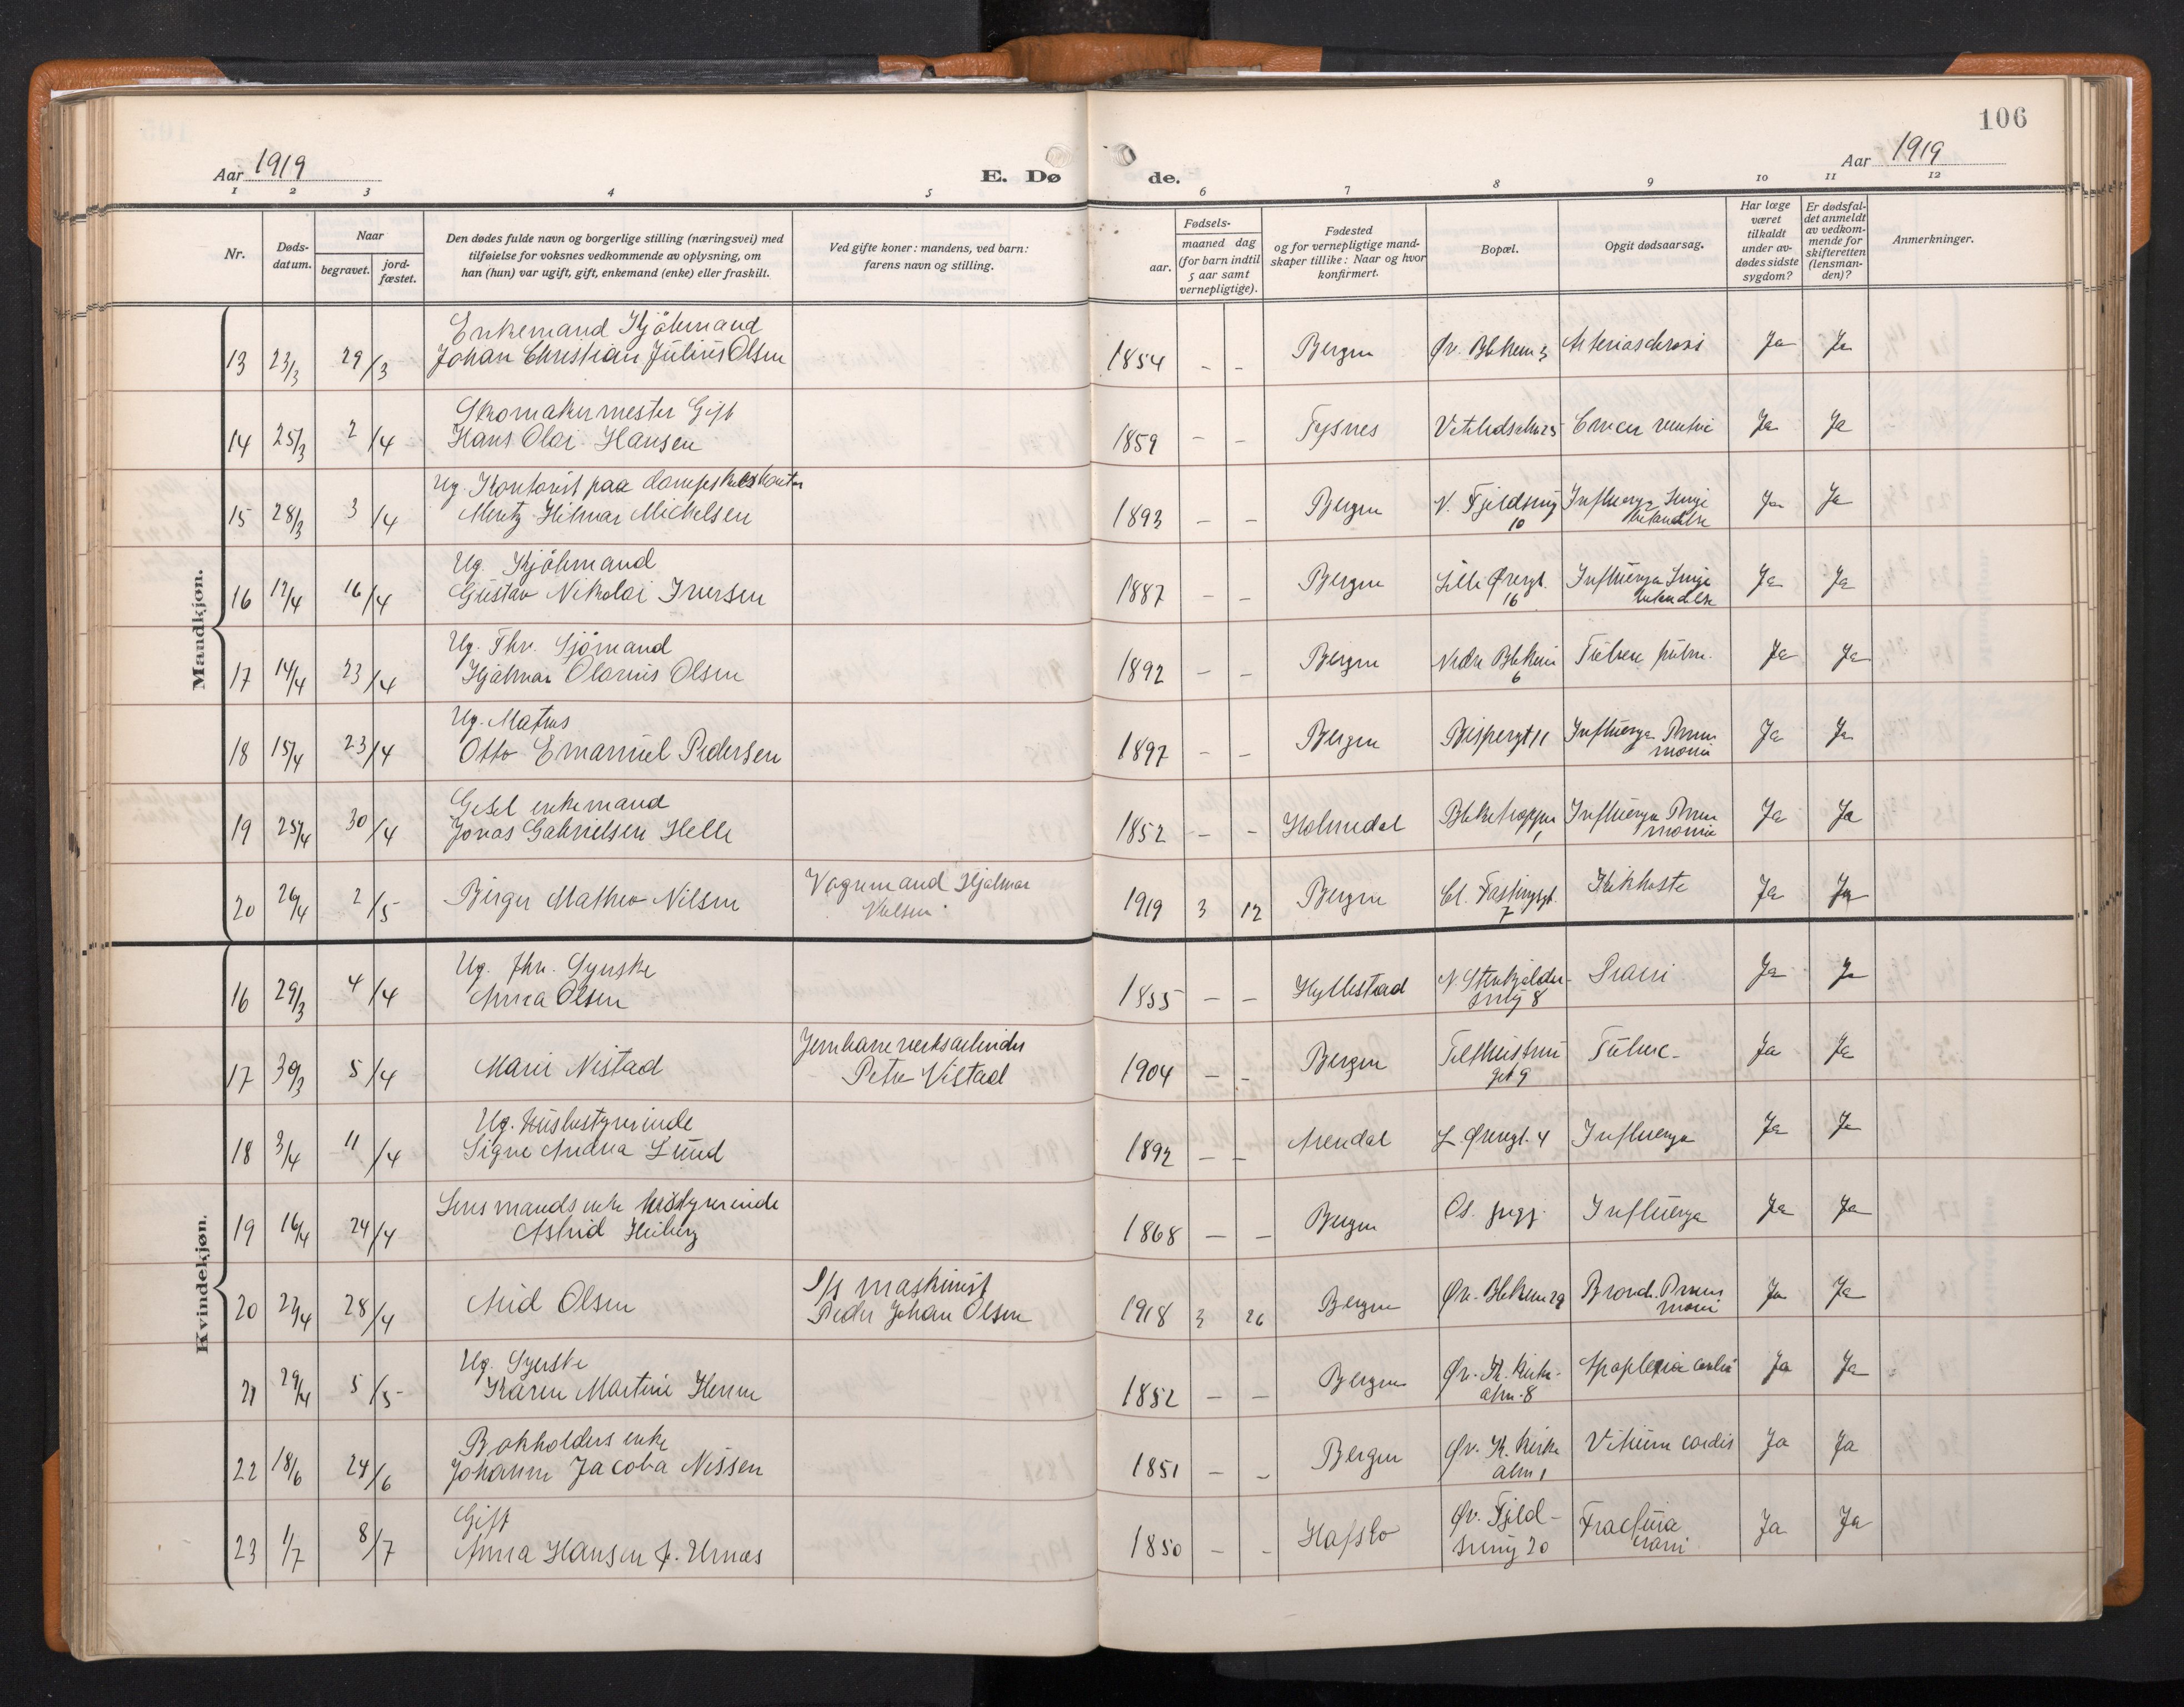 106
Aar 1919
E. Dø
de.
Aar 1919
1 2 3 4 5 6 7 8 9 10 11 12
Nr.
Døds-
datum.
Naar
begravet.
jord-
fæstet.
Den dødes fulde navn og borgerlige stilling (næringsvei) med
tilføielse for voksnes vedkommende av oplysning, om
han (hun) var ugift, gift, enkemand (enke) eller fraskilt.
Ved gifte koner: mandens, ved barn:
farens navn og stilling.
Fødsels-
aar.
maaned dag
(for barn indtil
5 aar samt
vernepligtige).
Fødested
og for vernepligtige mand-
skaper tillike: Naar og hvor
konfirmert.
Bopæl.
Opgit dødsaarsag.
Har læge
været
tilkaldt
under av-
dødes sidste
sygdom?
Er dødsfal-
det anmeldt
av vedkom-
mende for
skifteretten
(lensman-
den)?
Anmerkninger.
Mandkjøn.
Enkemand Kjølmand
13 23/3 29/3 Johan Christian Julius Olsen 1854 - - Bergen Øv. Blekevei 3 Ja Ja
Skomakermester Gift
14 25/3 2/4 Hans Olai Hansen 1859 - - Tysnes Cancer ventric Ja Ja
Ug. Kontorist paa dampskibskontor
15 28/3 3/4 Mentz Hilmar Mickelsen 1893 - - Bergen N. Fjeldsmug 10 Influenza Lunge
betændelse Ja Ja
Ug. Kjølmand
16 12/4 16/4 Gustav Nikolai Iversen 1887 - - Bergen Lille Øvregt. 16 Influenza Lunge
betændelse Ja Ja
Ug. Fhv. Sjømand
17 14/4 23/4 Hjalmar Olarius Olsen 1892 - - Bergen Nedre Blekevei 6 Tuberc pulm. Ja Ja
Ug. Matros
18 15/4 23/4 Otto Emanuel Pedersen 1897 - - Bergen Bispengt 11 Influenza Pneu
monia Ja Ja
Gesel enkemand
19 25/4 30/4 Jonas Gabrielsen Helle 1852 - - Holmedal 1 Influenza Pneu
monia Ja Ja
20 26/4 2/5 Birger Matheo Nilsen Vognmand Hjalmar
Nilsen 1919 3 12 Bergen Cl. Fastingsgt. 7 Kikhoste Ja Ja
Kvindekjøn.
Ug. fhv. Syerske
16 29/3 4/4 Anna Olsen 1855 - - Hyllestad N. Stenkjelder-
smug 8 Ja Ja
17 30/3 5/4 Marie Nistad Jernbaneverksarbeider
Peter Nistad 1904 - - Bergen 9 Tuberc- Ja Ja
Ug. Husbestyrerinde
18 3/4 11/4 Signe Andrea Lund 1892 - - Arendal L. Øvregt. 4 Influenza Ja Ja
Lensmands enke husstyrerinde
19 16/4 24/4 Astrid Heiberg 1868 - - Bergen Influenza Ja Ja
20 22/4 28/4 Arid Olsen D/s maskinist
Peder Johan Olsen 1918 3 26 Bergen Øv. Blekevei 29 Bronch. Pneu
moni Ja Ja
Ug. Syerske
21 29/4 5/5 Karen Martine Herm 1852 - - Bergen Øv. K. Kirke-
alm. 8 Apoplexia cerebri Ja Ja
Bokholders enke
22 18/6 24/6 Johanne Jacoba Nissen 1851 - - Bergen Øv. K. Kirke
alm 1 Vitium cordis Ja Ja
Gift
23 1/7 8/7 Anna Hansen f. Urnæs 1850 - - Hafslo Øv. Fjeld-
smug 20 Fractura
crani Ja Ja